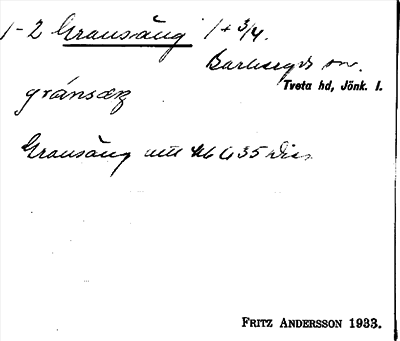 1-2 Gransäng 1+3/4.
Barkeryds sn.
Tveta hd, Jönk. l.
gránsæŋ
Gransäng
FRITZ ANDERSSON 1933.